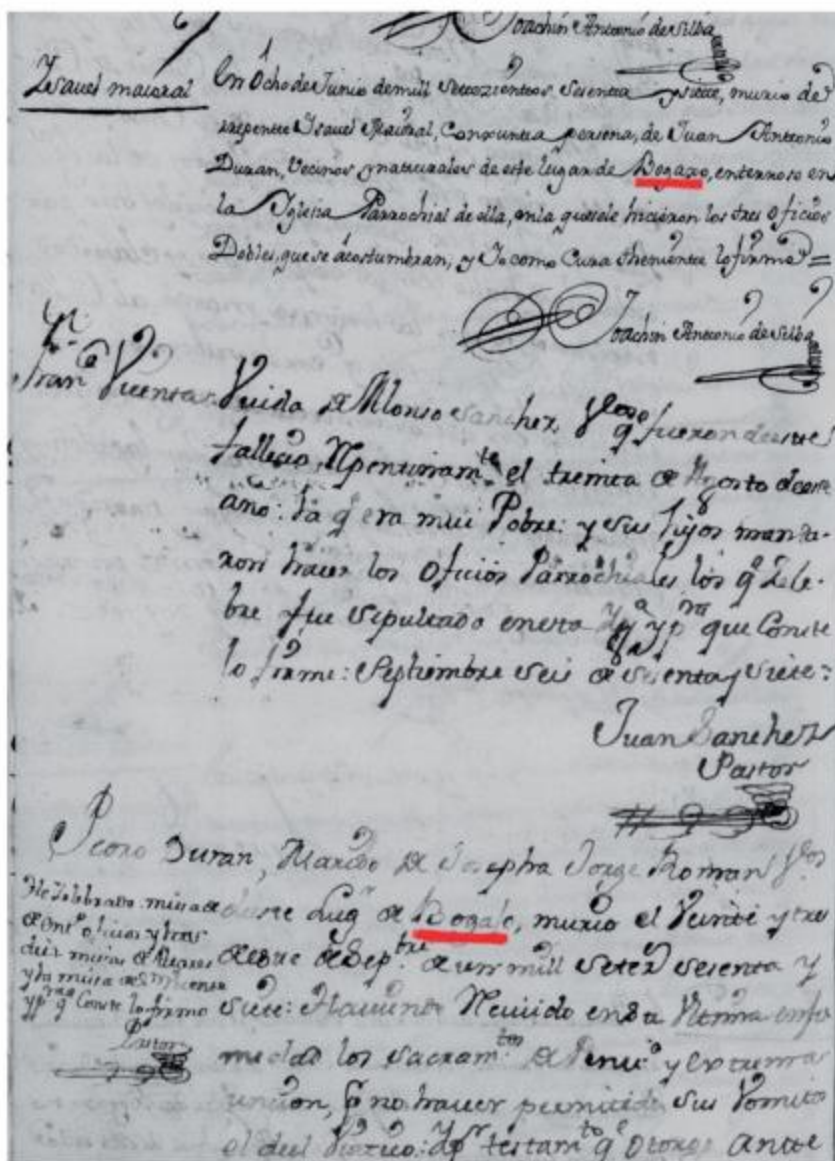 Joachin Antonio de Silba
Ysavel maioral
En Ocho de Junio de mill Setezientos Sesenta y siete, murio de
rrepente Ysavel Maioral, Conxunta persona, de Juan Anttonio
Duran, Vecinos y naturales de este lugar de Bogaxo, enterrose en
la Yglesia Parrochial de ella, en la que se le hicieron los tres oficios
Dobles, que se acostumbran, y Yo como Cura theniente lo firme =
Joachin Anttonio de Silba
Fran.ca Vicenta Viuda de Alonso Sanchez, q.e fueron de este
fallecio Repentinam.te el treinta de Agosto de este
año: la q.e era mui Pobre: y sus hijos manda-
ron hacer los oficios Parrochiales los q.e Zele-
bre fue sepultado en esta Yg.a y p.ra que Conste
lo firme: Septiembre seis de sesenta y siete:
Juan Sanchez
Pastor
Pedro Duran, Marido de Josepha Jorge Roman
de este Lug.r de Bogajo, murio el Veinte y tres
de este de Sep.tre de un mill setez.s sesenta y
siete: Haviendo Recivido en su Ultima enfer
medad los sacram.tos de Penit.a y extrema
uncion, p.r no haver permitido sus Vomitos
el del Viatico: testam.to q.e Otorgo ante
He Zelebrado misa de
oficios y tres
diez misas
y la misa de S. Vicente
y p.ra q.e Conste lo firmo
Pastor